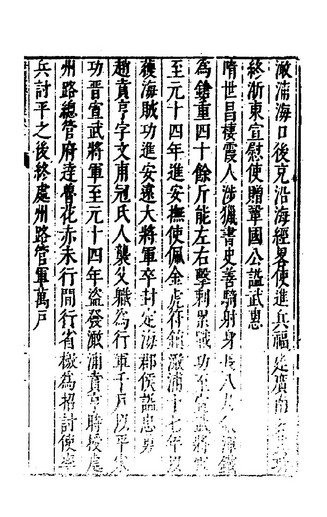 澉浦海口後充沿海經畧使進兵福建廣南
終浙東宣慰使贈鞏國公諡武惠
隋世昌棲霞人涉獵書史善騎射身長八尺
為鎗重四十餘斤能左右擊刺累戰功至宣武將軍
至元十四年進安撫使佩金虎符鎮澉浦十七年以
獲海賊功進安遠大將軍卒封定海郡侯諡忠勇
趙賁亨字文甫冠氏人襲父職為行軍千戶以平宋
功晋宣武將軍至元十四年盜發澉浦賁亨時授處
州路總管府達魯花赤未行間行省檄為招討使率
兵討平之後終處州路管軍萬戶